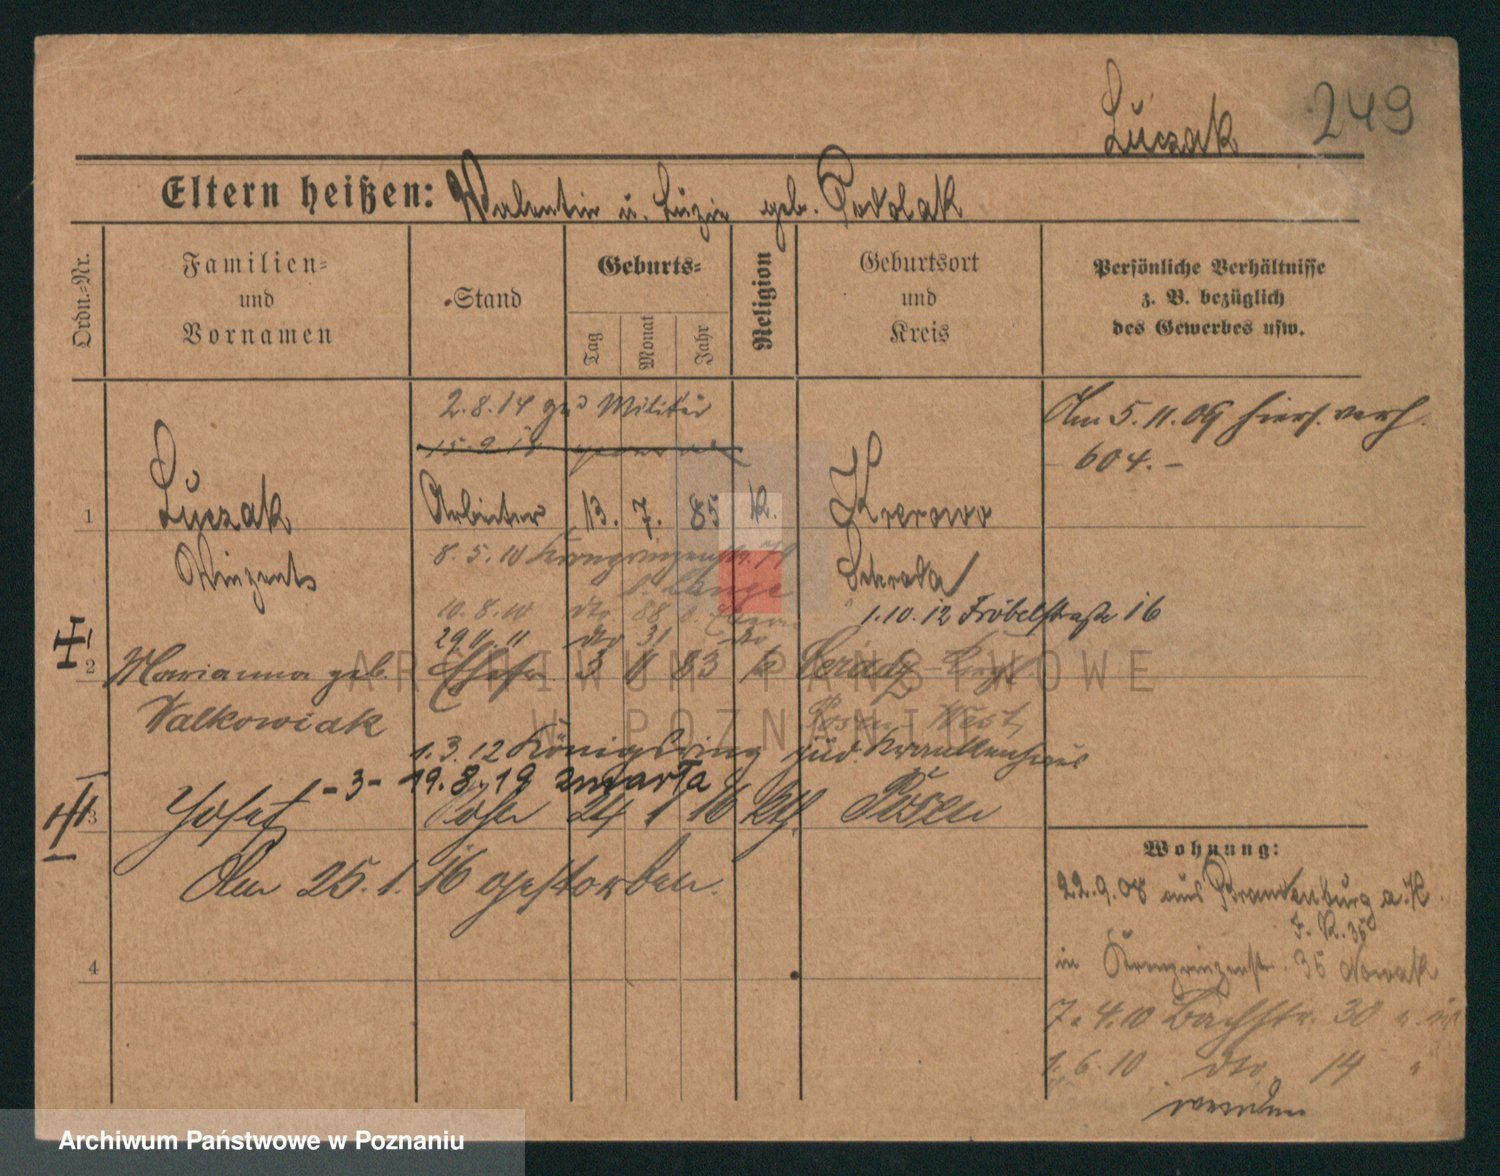 249
Łuczak
Eltern heißen: Valentin u. Luzie geb. Podolak
Ordn.-Nr.
Familien-
und
Vornamen
Stand
Geburts-
Tag
Monat
Jahr
Religion
Geburtsort
und
Kreis
Persönliche Verhältnisse
z. B. bezüglich
des Gewerbes usw.
2.8.14 Militär
Am 5.11.09 hiers. verh.
15.9.13
604.-
1
Łuczak Arbeiter 13. 7. 85 k. Krerowo
Winzent Schroda
8.5.10 Kronprinzenstr.
b. Lange
10.8.10 dto. 88
1.10.12 Fröbelstraße 16
29.11.11 dto 31 dto
2
Marianna geb. Ehefr. 3 11 83 k
Walkowiak
Posen-West
1.3.12 Königsring jüd. Krankenhaus
-3- 19.8.19 zmarła
3
Josef Sohn 24 1 16 kth. Posen
Am 25.1.16 gestorben.
4
Wohnung:
22.9.08 aus Brandenburg a.H.
F. R. 35
in Kronprinzenstr. 35 Nowak
7.4.10 Bachstr. 30
1.6.10 dto 14 "
ARCHIWUM PAŃSTWOWE
W POZNANIU
Archiwum Państwowe w Poznaniu